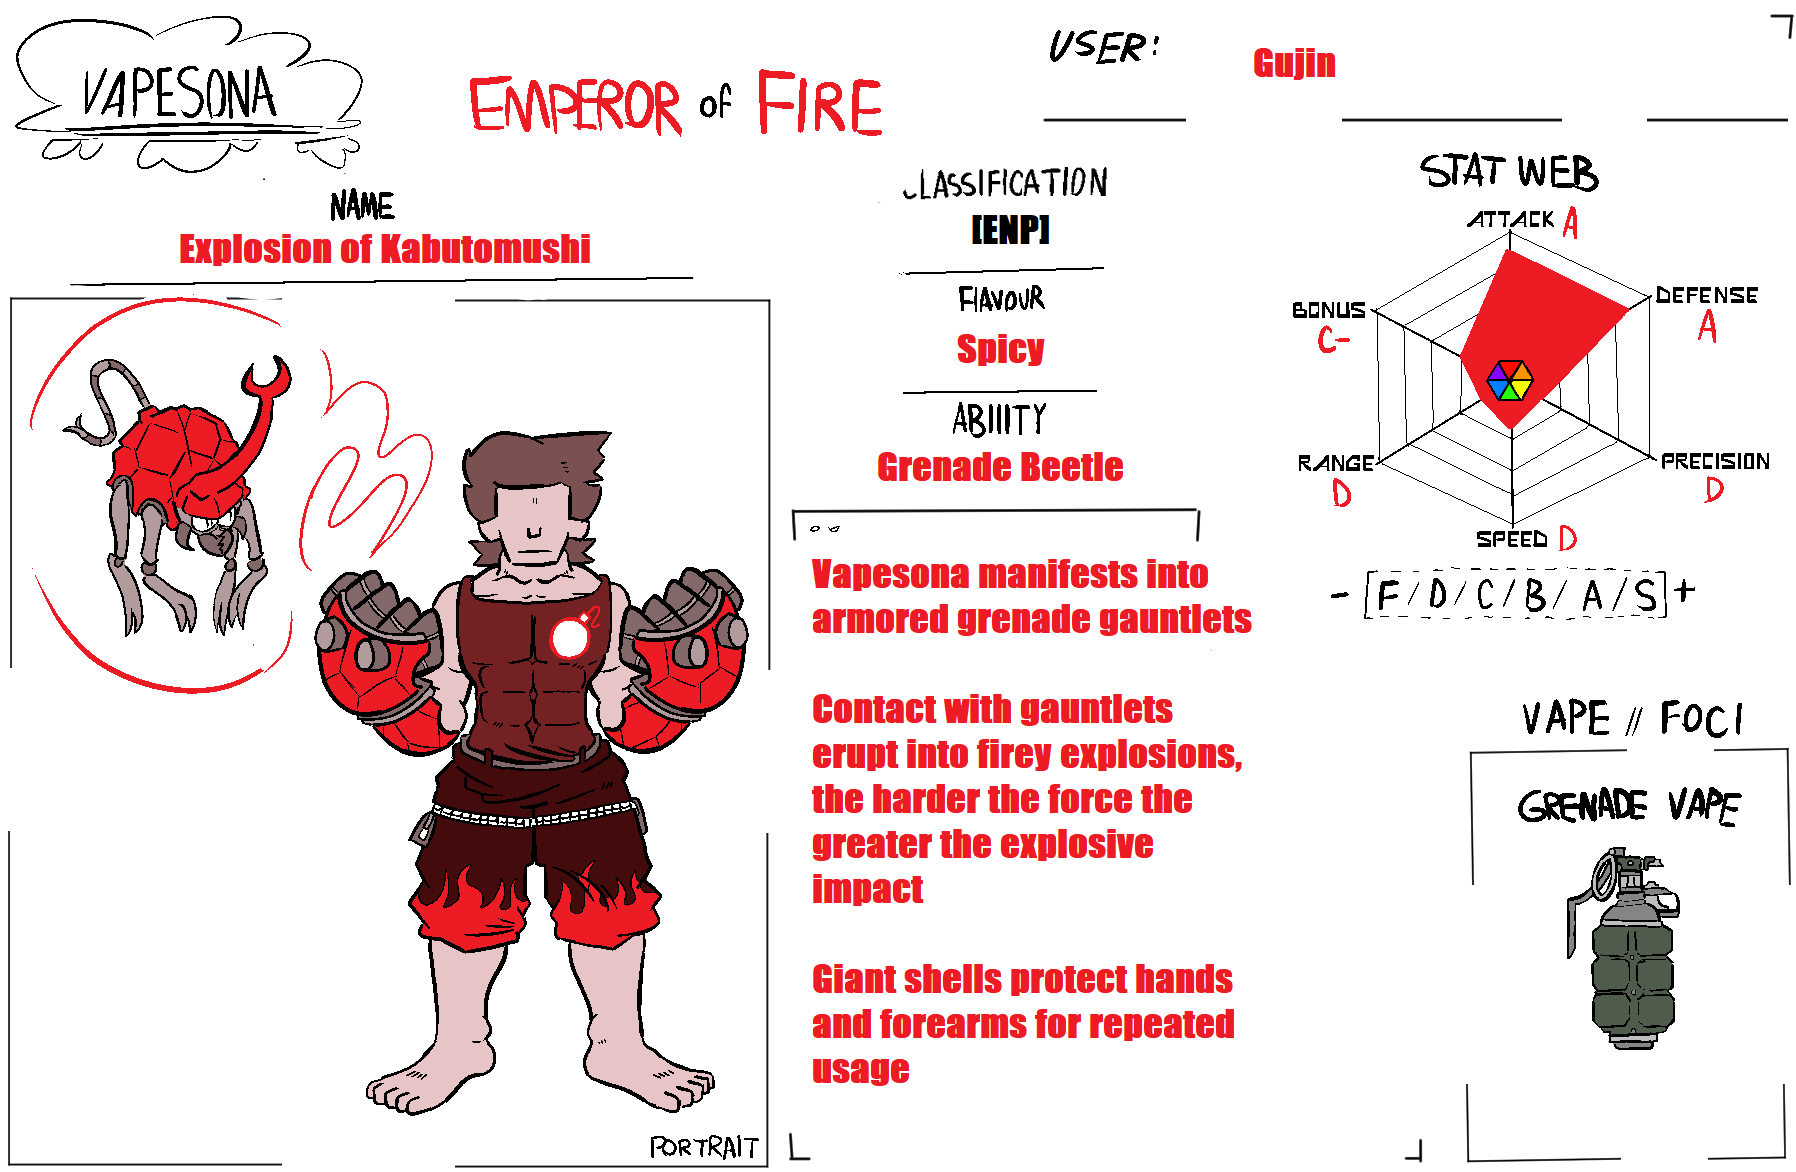 VAPESONA
EMPEROR of FIRE
USER: Gujin
NAME
Explosion of Kabutomushi
CLASSIFICATION
[ENP]
FlAVOUR
Spicy
ABIlITY
Grenade Beetle
Vapesona manifests into
armored grenade gauntlets
Contact with gauntlets
erupt into firey explosions,
the harder the force the
greater the explosive
impact
Giant shells protect hands
and forearms for repeated
usage
PORTRAIT
STAT WEB
ATTACK A
BONUS C-
DEFENSE A
RANGE D
PRECISION D
SPEED D
- [F/D/C/B/A/S] +
VAPE // FOCI
GRENADE VAPE